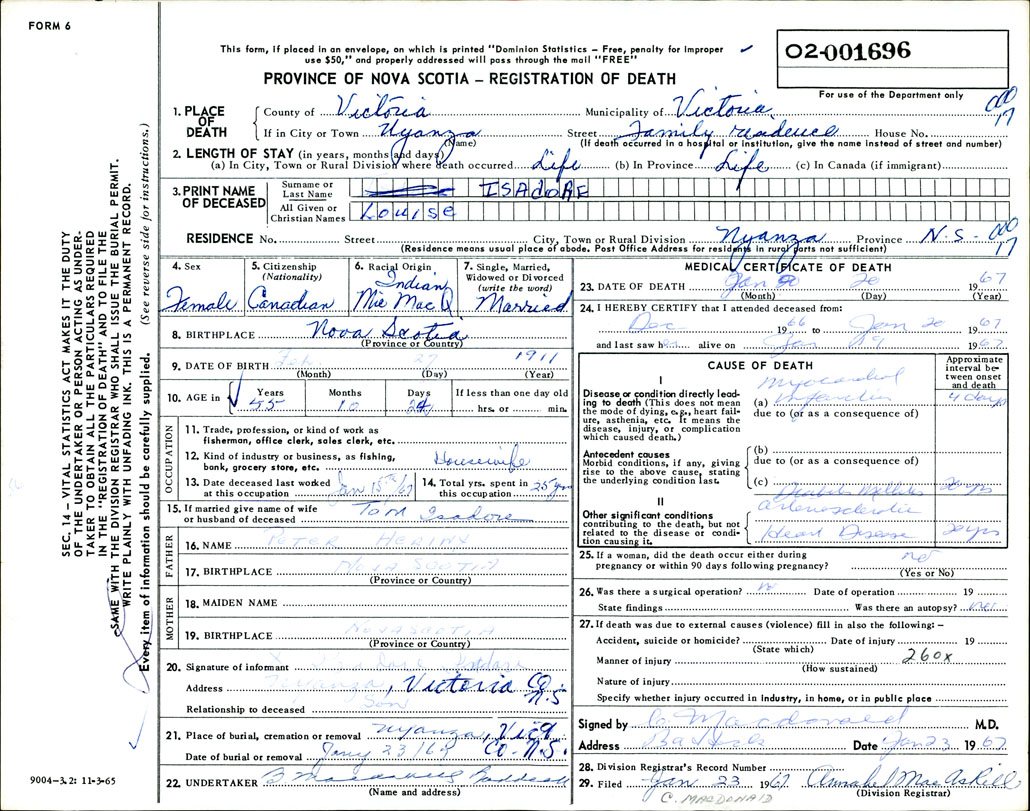 FORM 6
This form, if placed in an envelope, on which is printed "Dominion Statistics – Free, penalty for improper
use $50," and properly addressed will pass through the mail "FREE"
02-001696
PROVINCE OF NOVA SCOTIA – REGISTRATION OF DEATH
For use of the Department only
1. PLACE OF DEATH County of Victoria Municipality of Victoria 000 17
If in City or Town Nyanza Street Family residence House No.
(Name) (If death occurred in a hospital or institution, give the name instead of street and number)
2. LENGTH OF STAY (in years, months and days)
(a) In City, Town or Rural Division where death occurred Life (b) In Province Life (c) In Canada (if immigrant)
3. PRINT NAME OF DECEASED Surname or Last Name ISADORE
All Given or Christian Names LOUISE
RESIDENCE No. Street City, Town or Rural Division Nyanza Province N.S. 000 17
(Residence means usual place of abode. Post Office Address for residents in rural parts not sufficient)
4. Sex 5. Citizenship (Nationality) 6. Racial Origin 7. Single, Married, Widowed or Divorced (write the word)
Female Canadian Indian Mic Mac Married
8. BIRTHPLACE Nova Scotia
(Province or Country)
9. DATE OF BIRTH Feb 27 1911
(Month) (Day) (Year)
10. AGE in Years Months Days If less than one day old
55 10 hrs. or min.
OCCUPATION
11. Trade, profession, or kind of work as
fisherman, office clerk, sales clerk, etc.
12. Kind of industry or business, as fishing,
bank, grocery store, etc. Housewife
13. Date deceased last worked at this occupation Jan 15th/67 14. Total yrs. spent in this occupation 25 yrs
15. If married give name of wife
or husband of deceased Tom Isadore
FATHER
16. NAME PETER
17. BIRTHPLACE NOVA SCOTIA
(Province or Country)
MOTHER
18. MAIDEN NAME
19. BIRTHPLACE NOVA SCOTIA
(Province or Country)
20. Signature of informant
Address Nyanza, Victoria Co. N.S
Relationship to deceased Son
21. Place of burial, cremation or removal Nyanza, Vict Co. N.S.
Date of burial or removal Jany 23/67
22. UNDERTAKER Baddeck
(Name and address)
MEDICAL CERTIFICATE OF DEATH
23. DATE OF DEATH Jan 20 1967
(Month) (Day) (Year)
24. I HEREBY CERTIFY that I attended deceased from:
Dec 1966 to Jan 20 1967
and last saw her alive on Jan 19 1967
CAUSE OF DEATH
Approximate interval between onset and death
I
Disease or condition directly leading to death (This does not mean the mode of dying, e.g., heart failure, asthenia, etc. It means the disease, injury, or complication which caused death.)
(a) Myocardial Infarction 4 days
due to (or as a consequence of)
Antecedent causes
Morbid conditions, if any, giving rise to the above cause, stating the underlying condition last.
(b)
due to (or as a consequence of)
(c) Diabetes Mellitus 20 yrs
II
Other significant conditions
contributing to the death, but not related to the disease or condition causing it.
Arteriosclerotic
Heart Disease 2 yrs
25. If a woman, did the death occur either during
pregnancy or within 90 days following pregnancy? no
(Yes or No)
26. Was there a surgical operation? no Date of operation 19
State findings Was there an autopsy?
27. If death was due to external causes (violence) fill in also the following: –
Accident, suicide or homicide? Date of injury 19
(State which)
Manner of injury 260x
(How sustained)
Nature of injury
Specify whether injury occurred in industry, in home, or in public place
Signed by C Macdonald M.D.
Address Baddeck Date Jan 23 1967
28. Division Registrar's Record Number
29. Filed Jan 23 1967 Annabel MacAskill
C. MACDONALD (Division Registrar)
SEC. 14 – VITAL STATISTICS ACT MAKES IT THE DUTY
OF THE UNDERTAKER OR PERSON ACTING AS UNDER-
TAKER TO OBTAIN ALL THE PARTICULARS REQUIRED
IN THE "REGISTRATION OF DEATH" AND TO FILE THE
SAME WITH THE DIVISION REGISTRAR WHO SHALL ISSUE THE BURIAL PERMIT.
WRITE PLAINLY WITH UNFADING INK. THIS IS A PERMANENT RECORD.
Every item of information should be carefully supplied. (See reverse side for instructions.)
9004–3.2: 11-3-65